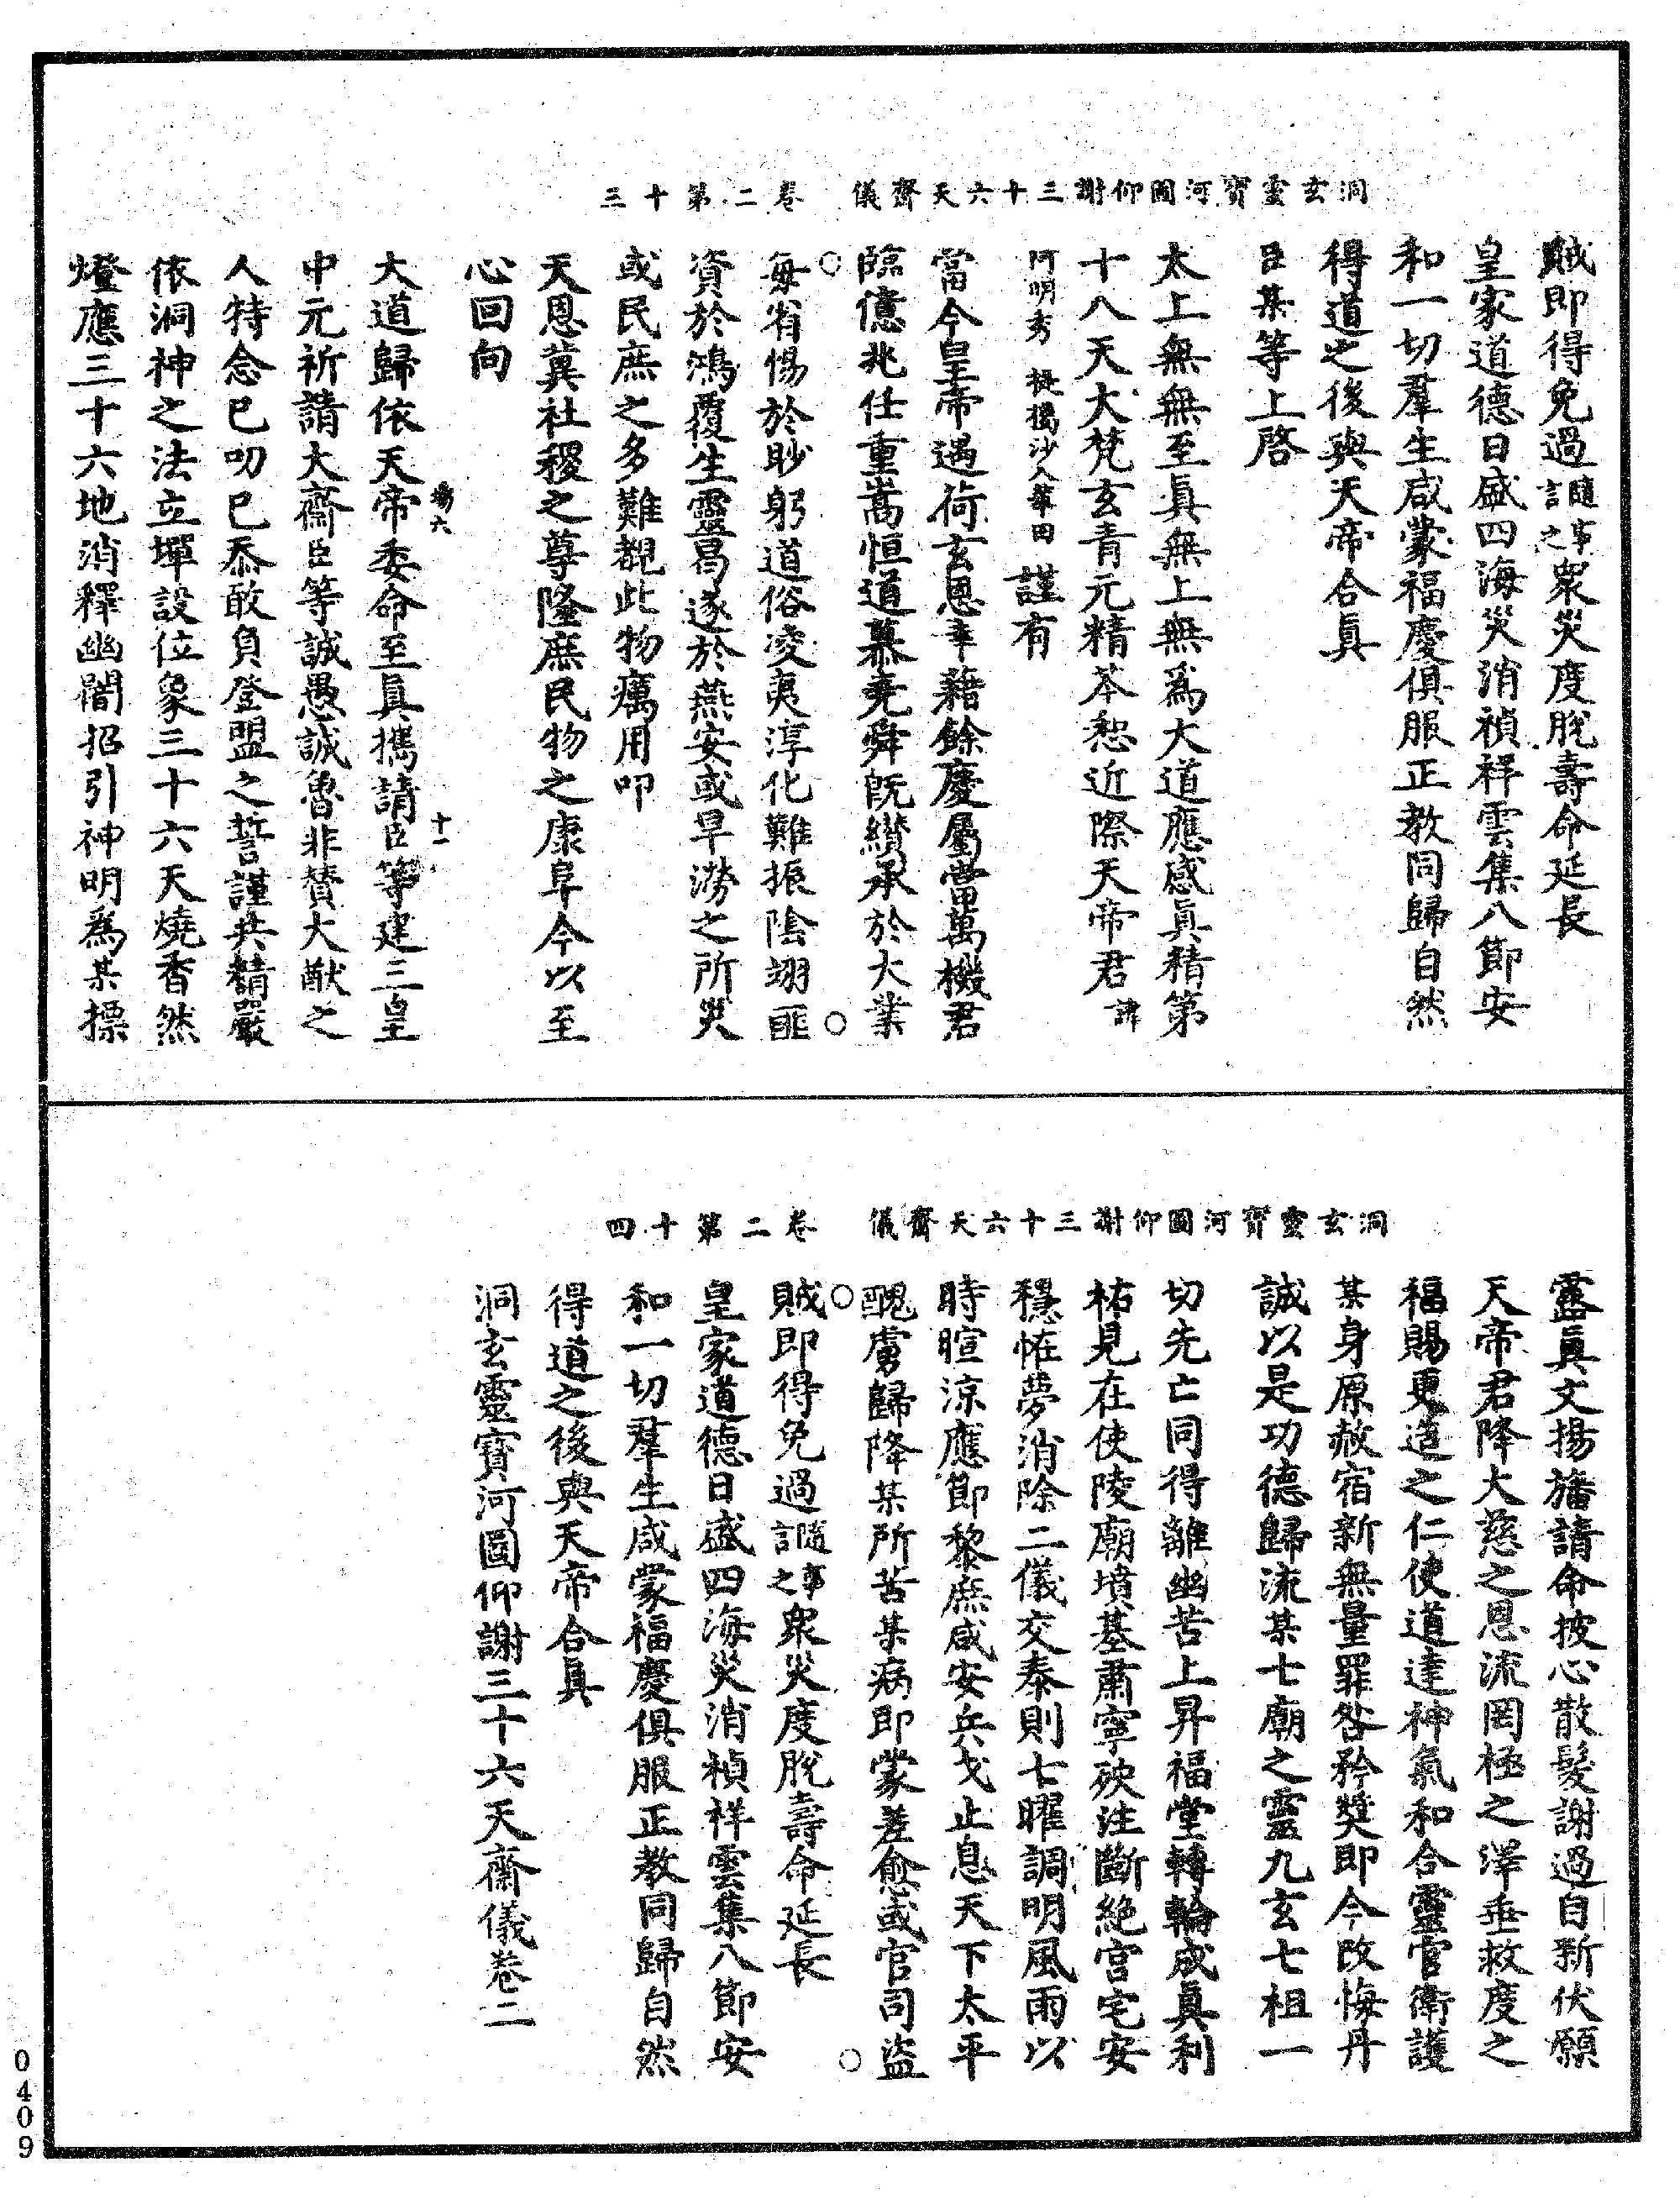 洞玄靈寶河圖仰謝三十六天齋儀　卷二第十三
賊即得免過隨事言之衆災度脫壽命延長
皇家道德日盛四海災消禎祥雲集八節安
和一切羣生咸蒙福慶俱服正教同歸自然
得道之後與天帝合眞
臣某等上啓
太上無無至眞無上無爲大道應感眞精第
十八天大梵玄青元精苓恕近際天帝君諱
阿明秀 提獨沙入華田 謹有
當今皇帝遇荷玄恩幸藉餘慶屬當萬機君
臨億兆任重嵩恒道慕堯舜既纘承於大業
每省惕於眇躬道俗凌夷淳化難振陰翊匪
資於鴻覆生靈曷遂於燕安或旱澇之所災
或民庶之多難覩此物癘用叩
天恩冀社稷之尊隆庶民物之康阜今以至
心回向
大道歸依天帝委命至眞攜請臣等建三皇
傷六　十一
中元祈請大齋臣等誠愚誠魯非贊大猷之
人特念已叨已忝敢負登盟之誓謹共精嚴
依洞神之法立墠設位象三十六天燒香然
燈應三十六地消釋幽闇招引神明爲某摽
洞玄靈寶河圖仰謝三十六天齋儀　卷二第十四
靈眞文揚旛請命披心散髮謝過自新伏願
天帝君降大慈之恩流罔極之澤垂救度之
福賜更造之仁使道達神氣和合靈官衛護
某身原赦宿新無量罪咎矜獎即今改悔丹
誠以是功德歸流某七廟之靈九玄七祖一
切先亡同得離幽苦上昇福堂轉輪成眞利
祐見在使陵廟墳基肅寧殃注斷絕宮宅安
穩恠夢消除二儀交泰則七曜調明風雨以
時暄涼應節黎庶咸安兵戈止息天下太平
醜虜歸降某所苦某病即蒙差愈或官司盜
賊即得免過隨事言之衆災度脫壽命延長
皇家道德日盛四海災消禎祥雲集八節安
和一切羣生咸蒙福慶俱服正教同歸自然
得道之後與天帝合眞
洞玄靈寶河圖仰謝三十六天齋儀卷二
0409